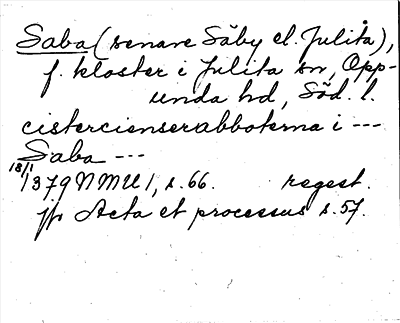 Saba (senare Säby el. Julita),
f. kloster i Julita sn, Opp-
unda hd, Söd. l.
cistercienserabboterna i ---
Saba ---
18/1 1379 NMU 1, s. 66. regest.
jfr Acta et processus s. 57.